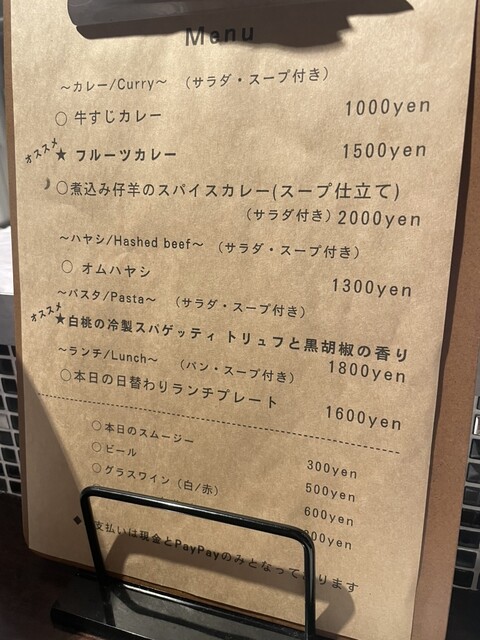 Menu
～カレー/Curry～ （サラダ・スープ付き）
○ 牛すじカレー 1000yen
オススメ
★ フルーツカレー 1500yen
○煮込み仔羊のスパイスカレー(スープ仕立て)
（サラダ付き）2000yen
～ハヤシ/Hashed beef～ （サラダ・スープ付き）
○ オムハヤシ 1300yen
～パスタ/Pasta～ （サラダ・スープ付き）
オススメ
★白桃の冷製スパゲッティ トリュフと黒胡椒の香り
1800yen
～ランチ/Lunch～ （パン・スープ付き）
○本日の日替わりランチプレート 1600yen
○本日のスムージー 300yen
○ビール 500yen
○グラスワイン（白/赤） 600yen
00yen
◆ 支払いは現金とPayPayのみとなっております